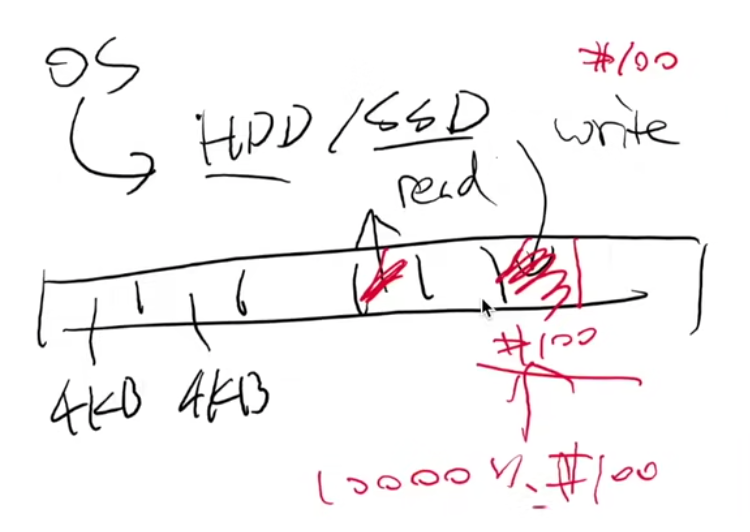 OS
#100
HDD / SSD
write
read
4KB 4KB
#100
10000 #100